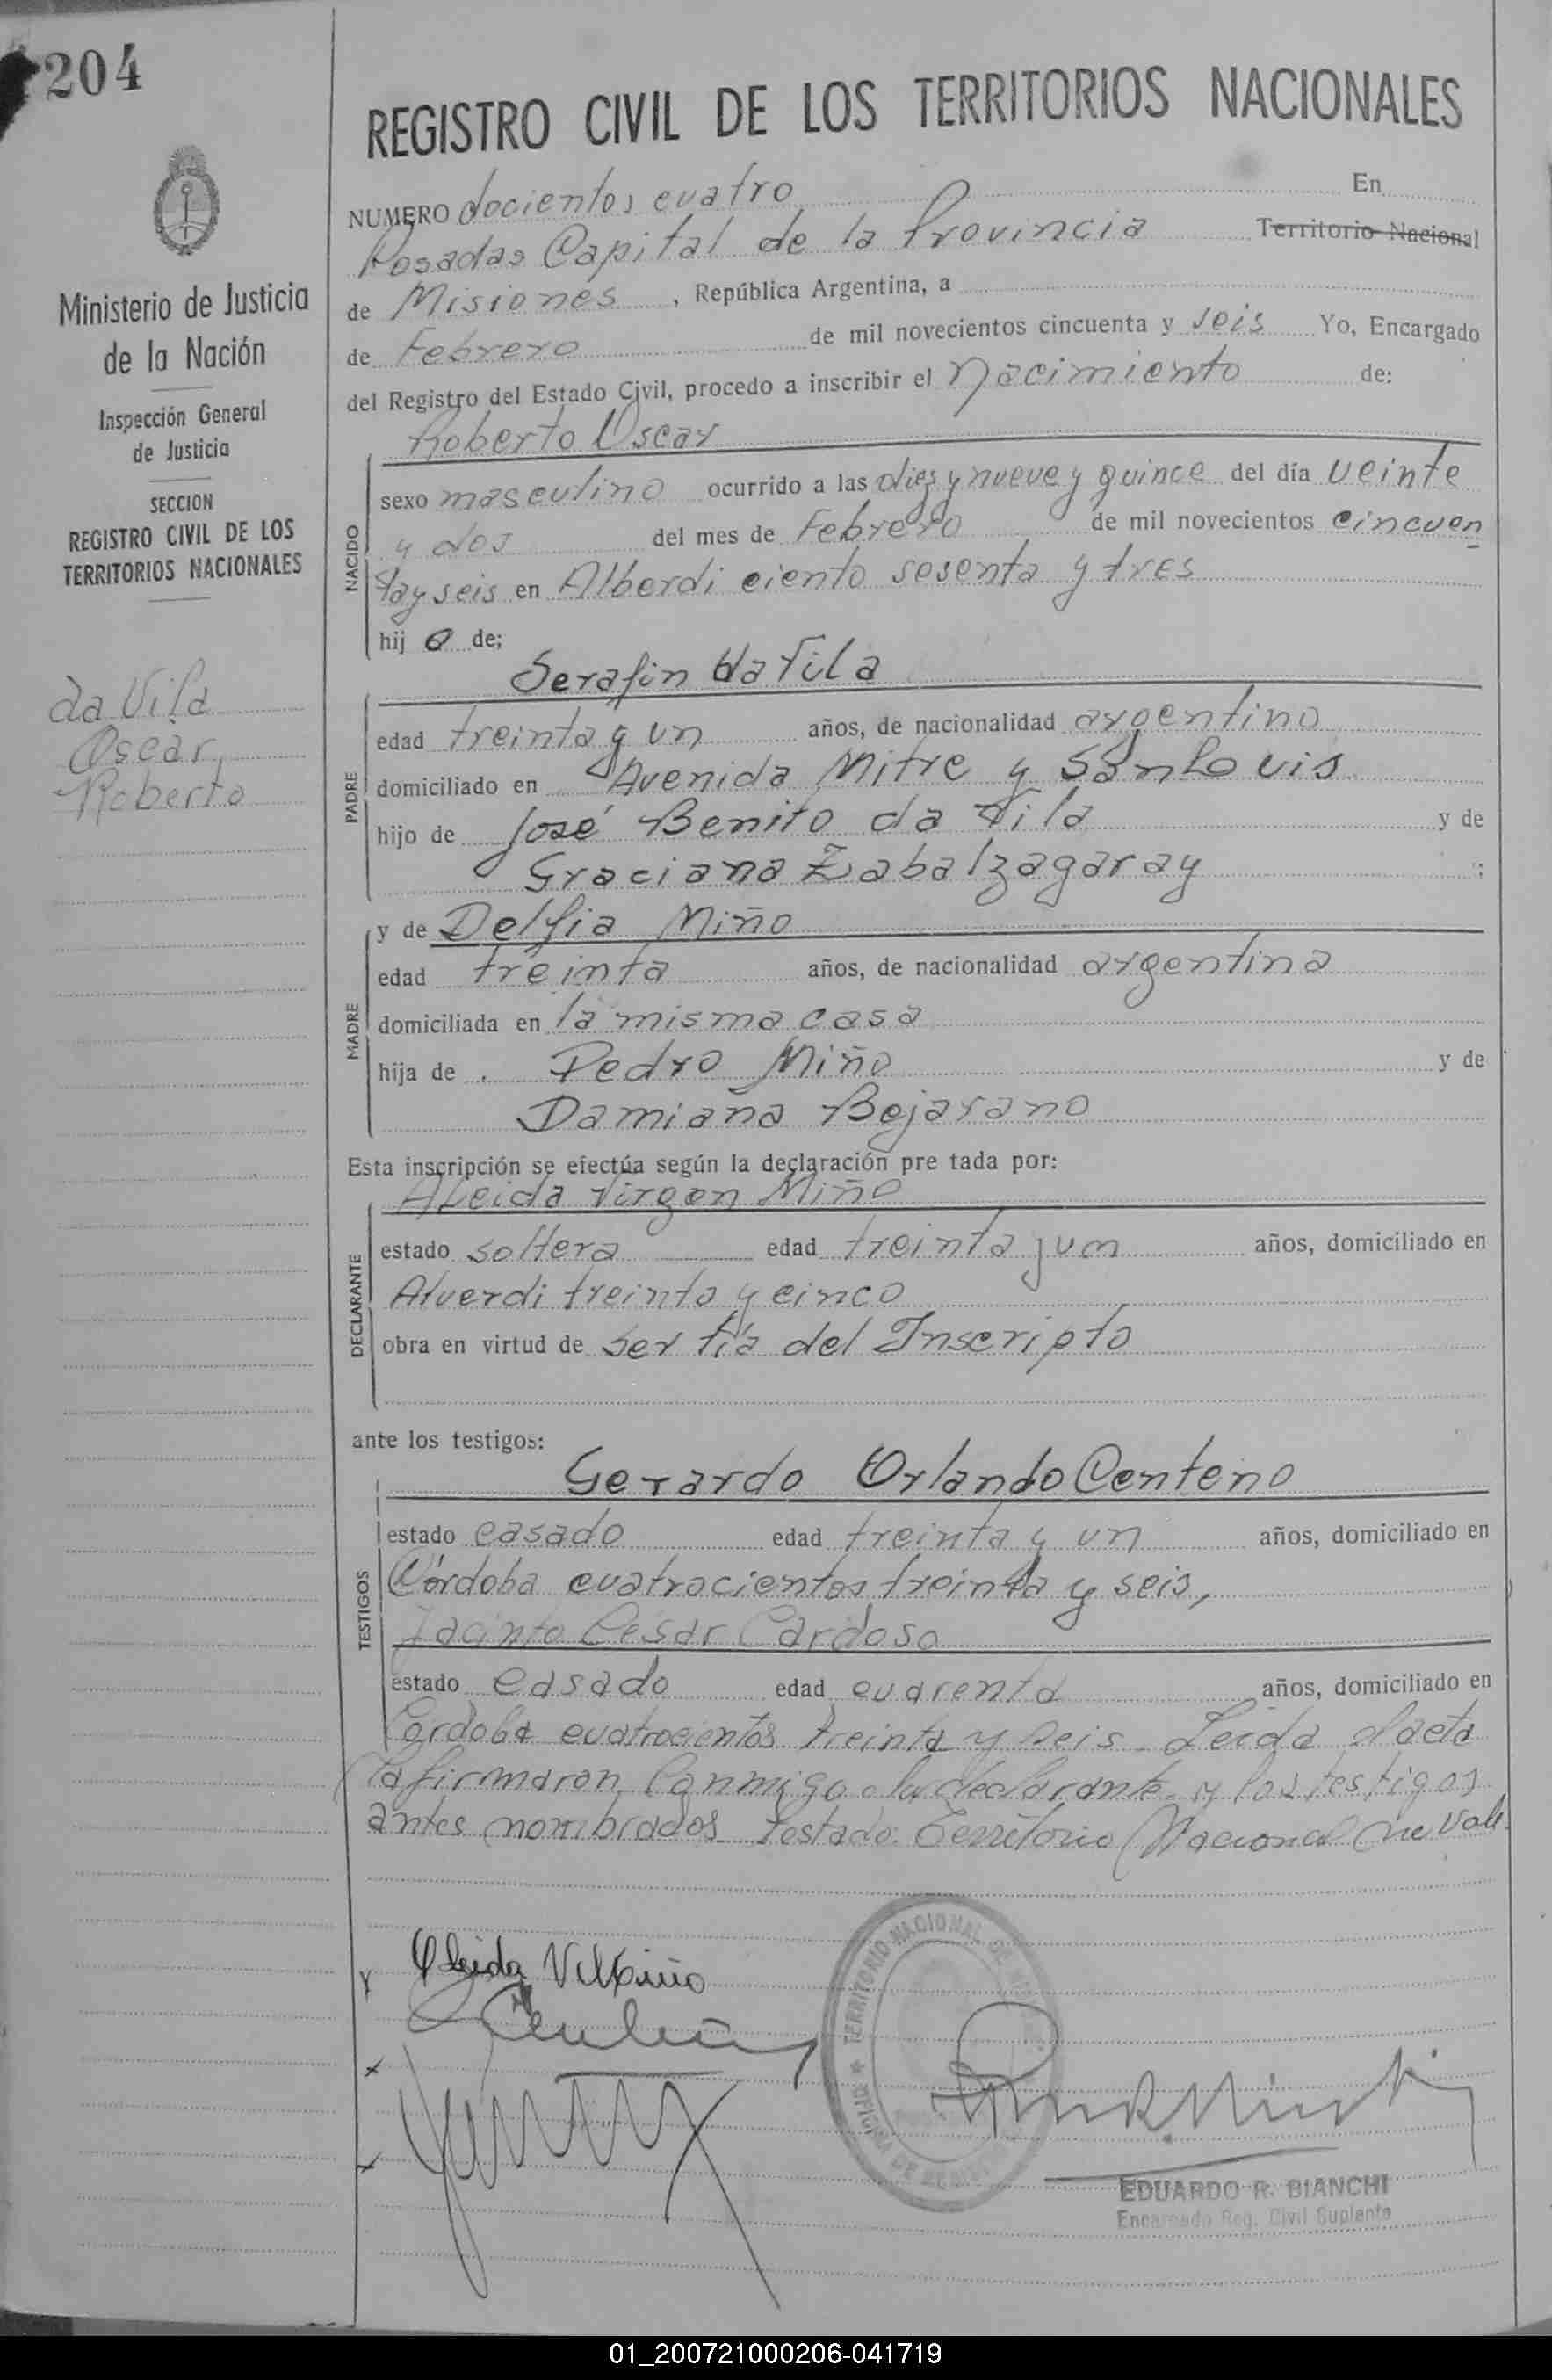 204
Ministerio de Justicia
de la Nación
Inspección General
de Justicia
SECCION
REGISTRO CIVIL DE LOS
TERRITORIOS NACIONALES
da Vila
Oscar
Roberto
REGISTRO CIVIL DE LOS TERRITORIOS NACIONALES
NUMERO docientos cuatro En
Posadas Capital de la Provincia Territorio Nacional
de Misiones , República Argentina, a
de Febrero de mil novecientos cincuenta y seis Yo, Encargado
del Registro del Estado Civil, procedo a inscribir el nacimiento de:
Roberto Oscar
NACIDO
sexo masculino ocurrido a las diez y nueve y quince del día veinte
y dos del mes de Febrero de mil novecientos cincuen
ta y seis en Alberdi ciento sesenta y tres
hij o de;
Serafin da Vila
PADRE
edad treinta y un años, de nacionalidad argentino
domiciliado en Avenida Mitre y San Louis
hijo de José Benito da Vila y de
Graciana Zabalzagaray ;
MADRE
y de Delfia Miño
edad treinta años, de nacionalidad argentina
domiciliada en la misma casa
hija de Pedro Miño y de
Damiana Bejarano
Esta inscripción se efectúa según la declaración pre tada por:
Aleida Virgen Miño
DECLARANTE
estado soltera edad treinta y un años, domiciliado en
Alverdi treinta y cinco
obra en virtud de ser tía del Inscripto
ante los testigos:
Gerardo Orlando Centeno
TESTIGOS
estado casado edad treinta y un años, domiciliado en
Córdoba cuatrocientos treinta y seis,
Jacinto César Cardoso
estado casado edad cuarenta años, domiciliado en
Córdoba cuatrocientos treinta y seis. Leida el acta
la firmaron conmigo la declarante y los testigos
antes nombrados Testado: Territorio Nacional no vale
Aleida V Miño
TERRITORIO NACIONAL DE
OFICINA DE
EDUARDO R. BIANCHI
Encargado Reg. Civil Suplente
01_200721000206-041719